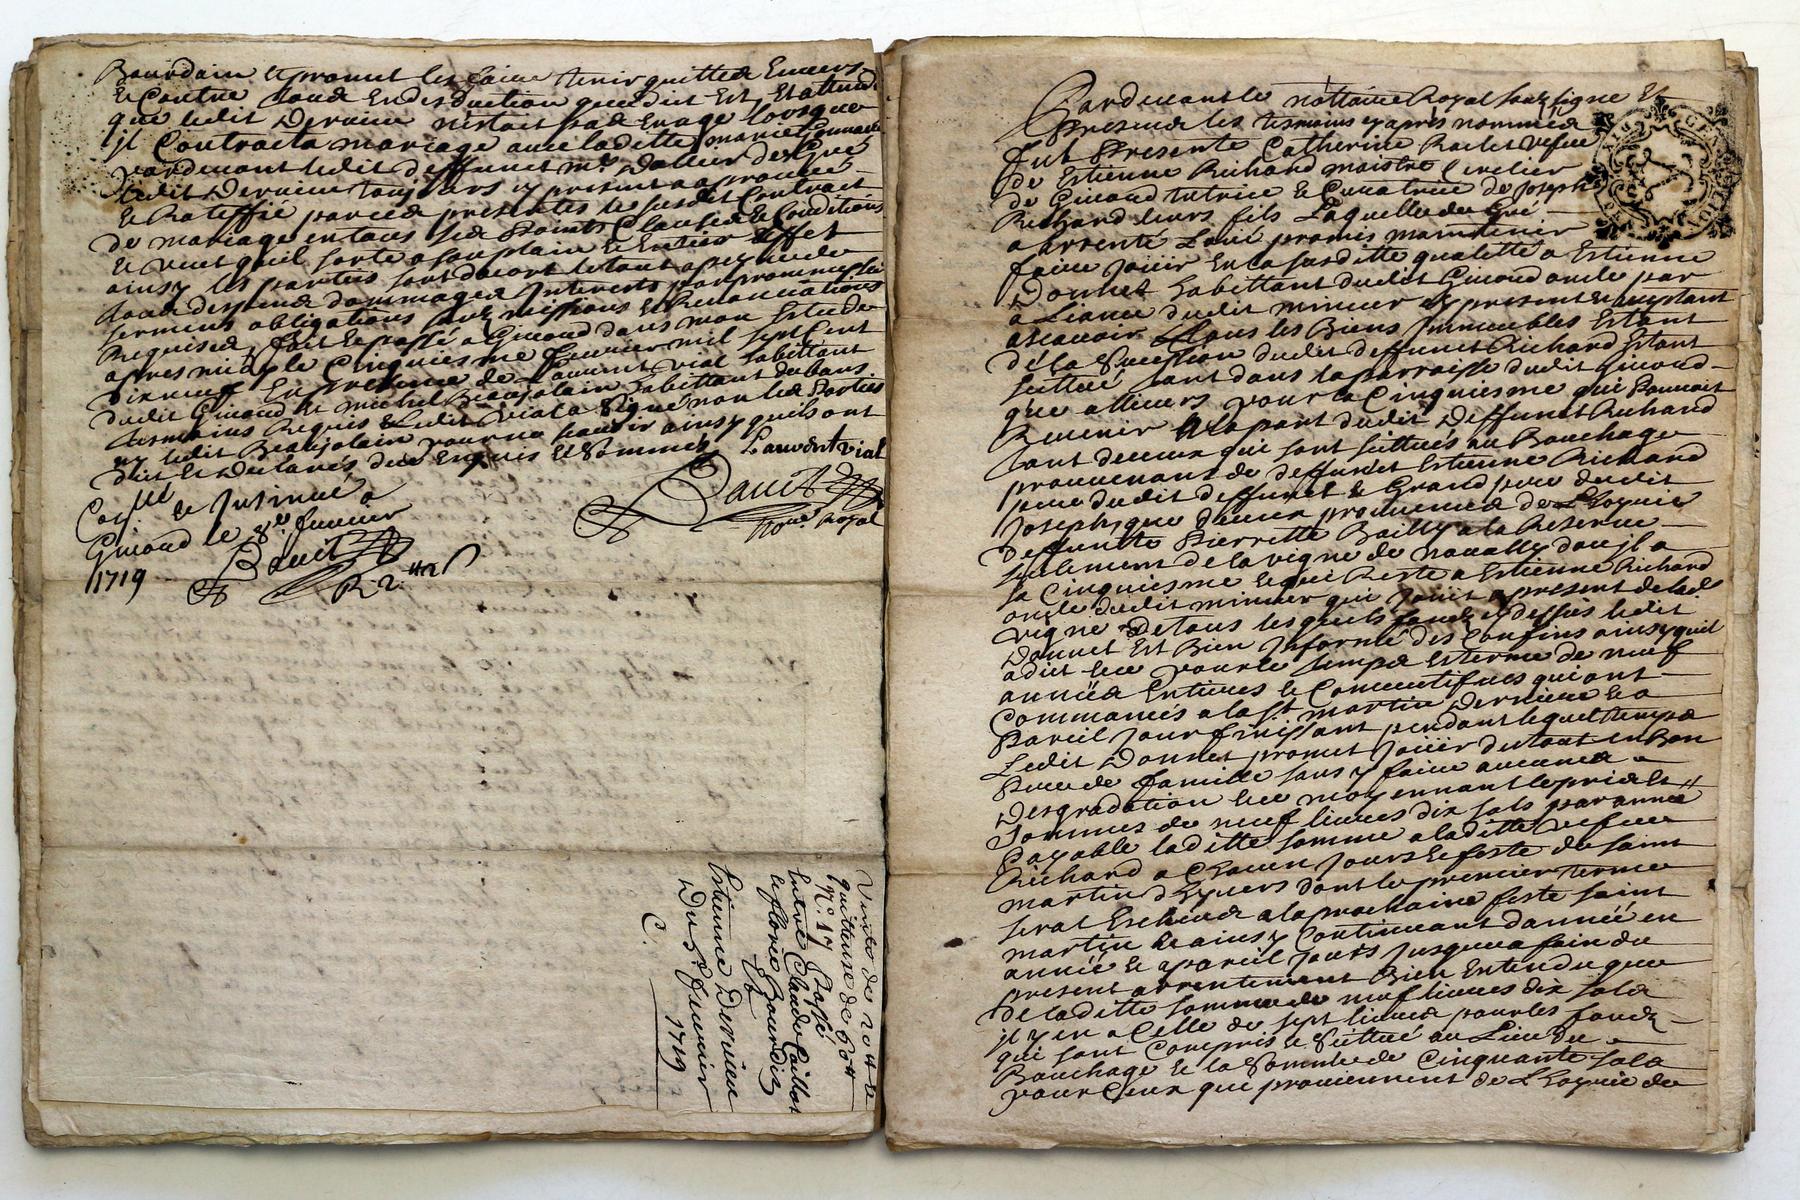 Bourdain et promet les faire tenir quittes Envers
Et Contre tous En desduction que dict Est, Et attendu
que ledit Dervieu n'estoit pas En age lorsque
jl Contracta mariage avec laditte mariet
pardevant ledit deffunct me
ledit Dervieu
Et Ratiffié par ces presentes le susdit Contract
de mariage en tous ses points Clauses Et Conditions
Et veut quil sorte a son plain Et Entier Effet
ainsy les parties sont dacort le tout a peyne de
tous despens dommages Interests par promesses
serments obligations soubmissions Et Renonciations
Requises, fait Et passé a Givord dans mon Estude
apres midy le Cinquiesme feuvrier mil sept Cent
dixneuf En presence de Laurent vial habittant
dudit Givord Et michel Beaujolain habittant
tesmoins Requis Ledit vial a signé non les Parties
ny ledit Beaujolain pour ne sçavoir ainsy quils ont
dict Et declarés de ce Enquis Et Sommés Laurent vial
Et Jnsinué a
Givord le 8e feuvrier
1719
royal
Pardevant le nottaire Royal soubsigné Et
Presens les tesmoins cy apres nommés
fut Presente Catherine vefue
de Estienne Richard maistre
de Givord tutrice Et Curatrice de Joseph
Richard leurs fils Laquelle de Gré
a arrenté promis maintenir
faire Joüir En la susditte qualitté a Estienne
Donnet habittant dudit Givord oncle par
aliance dudit mineur cy present Et aceptant
ascavoir Tous les Biens Jmmeubles Estant
dé la Sucession dudit deffunct Richard Estant
scittué tant dans la parroisse dudit Givord
que allieurs pour la Cinquiesme qui Pouvoit
Revenir a la part dudit Deffunct Richard
tant de ceux qui sont scittués au Bouchage
prouvenant de deffunct Estienne Richard
pere dudit deffunct Et Grand pere dudit
Joseph, que de ceux provenus de L'hoyrie
deffuncte Pierrette Bailly a la Reserve
seulement de la vigne de dou jl a
la Cinquiesme Et qui Reste a Estienne Richard
oncle dudit mineur qui Joüit a present de lad
vigne De tous lesquels fonds cy dessus ledit
Donnet Est Bien Jnformé des Confins ainsy quil
a dict Et ce pour le temps Et terme de neuf
années Entieres Et Consecutifves qui ont
Commancés a la St martin Derniere Et a
Pareil Jour finissant pendant lequel temps
Ledit Donnet promet Joüir du tout en Bon
Pere de famille sans y faire aucunes
Desgradation Et ce moyennant le prix Et
Sommes de neuf livres dix sols par année
Payable laditte somme a laditte vefue
Richard a Chacun Jours Et feste de saint
martin d'hyvers dont le premier terme
serat Escheus a la prochaine feste saint
martin Et ainsy Continuant d'année en
année Et pareil Jours Jusques a fain du
present arrentement Bien Entendu que
de laditte somme de neuf livres dix sols
jl y en a Celle de sept livres pour les fonds
qui sont Compris Et scittué au Lieu du
Bouchage Et la Somme de Cinquante sols
pour Ceux qui proviennent de L'hoyrie de
quittance de 60tt
No. 17 Passé
Entre Claude Caillot
Et florie Bourdin
Et
Estienne Dervieu
Du 5e feuvrier
1719
C.